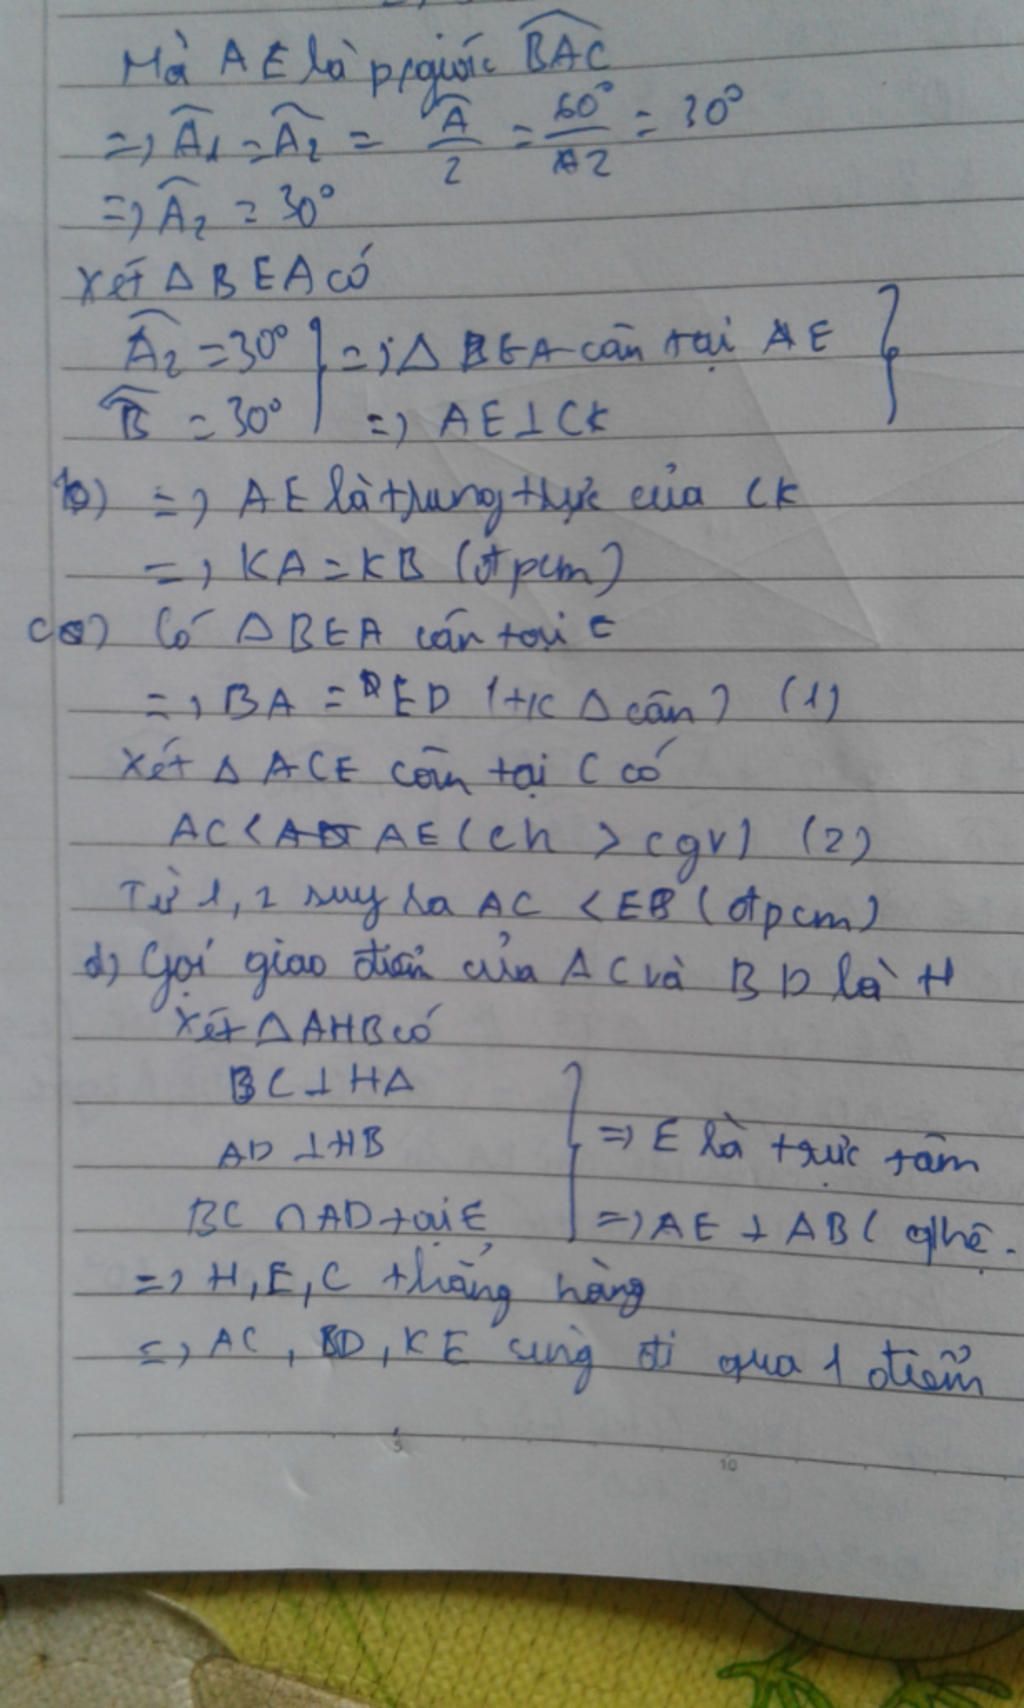 Mà AE là p/giác BAC
=> A1 = A2 = A/2 = 60°/2 = 30°
=> A2 = 30°
Xét Δ BEA có
A2 = 30° } => Δ BEA cân tại E }
B = 30° => AE ⊥ CK
b) => AE là trung trực của CK
=> KA = KB (đpcm)
c) Có Δ BEA cân tại E
=> BA = ED (t/c Δ cân) (1)
Xét Δ ACE cân tại C có
AC < AE (ch > cgv) (2)
Từ 1, 2 suy ra AC < EB (đpcm)
d) Gọi giao điểm của AC và BD là H
Xét Δ AHB có
BC ⊥ HA
AD ⊥ HB } => E là trực tâm
BC ∩ AD tại E => AE ⊥ AB (
=> H, E, C thẳng hàng
=> AC, BD, KE cùng đi qua 1 điểm
5
10